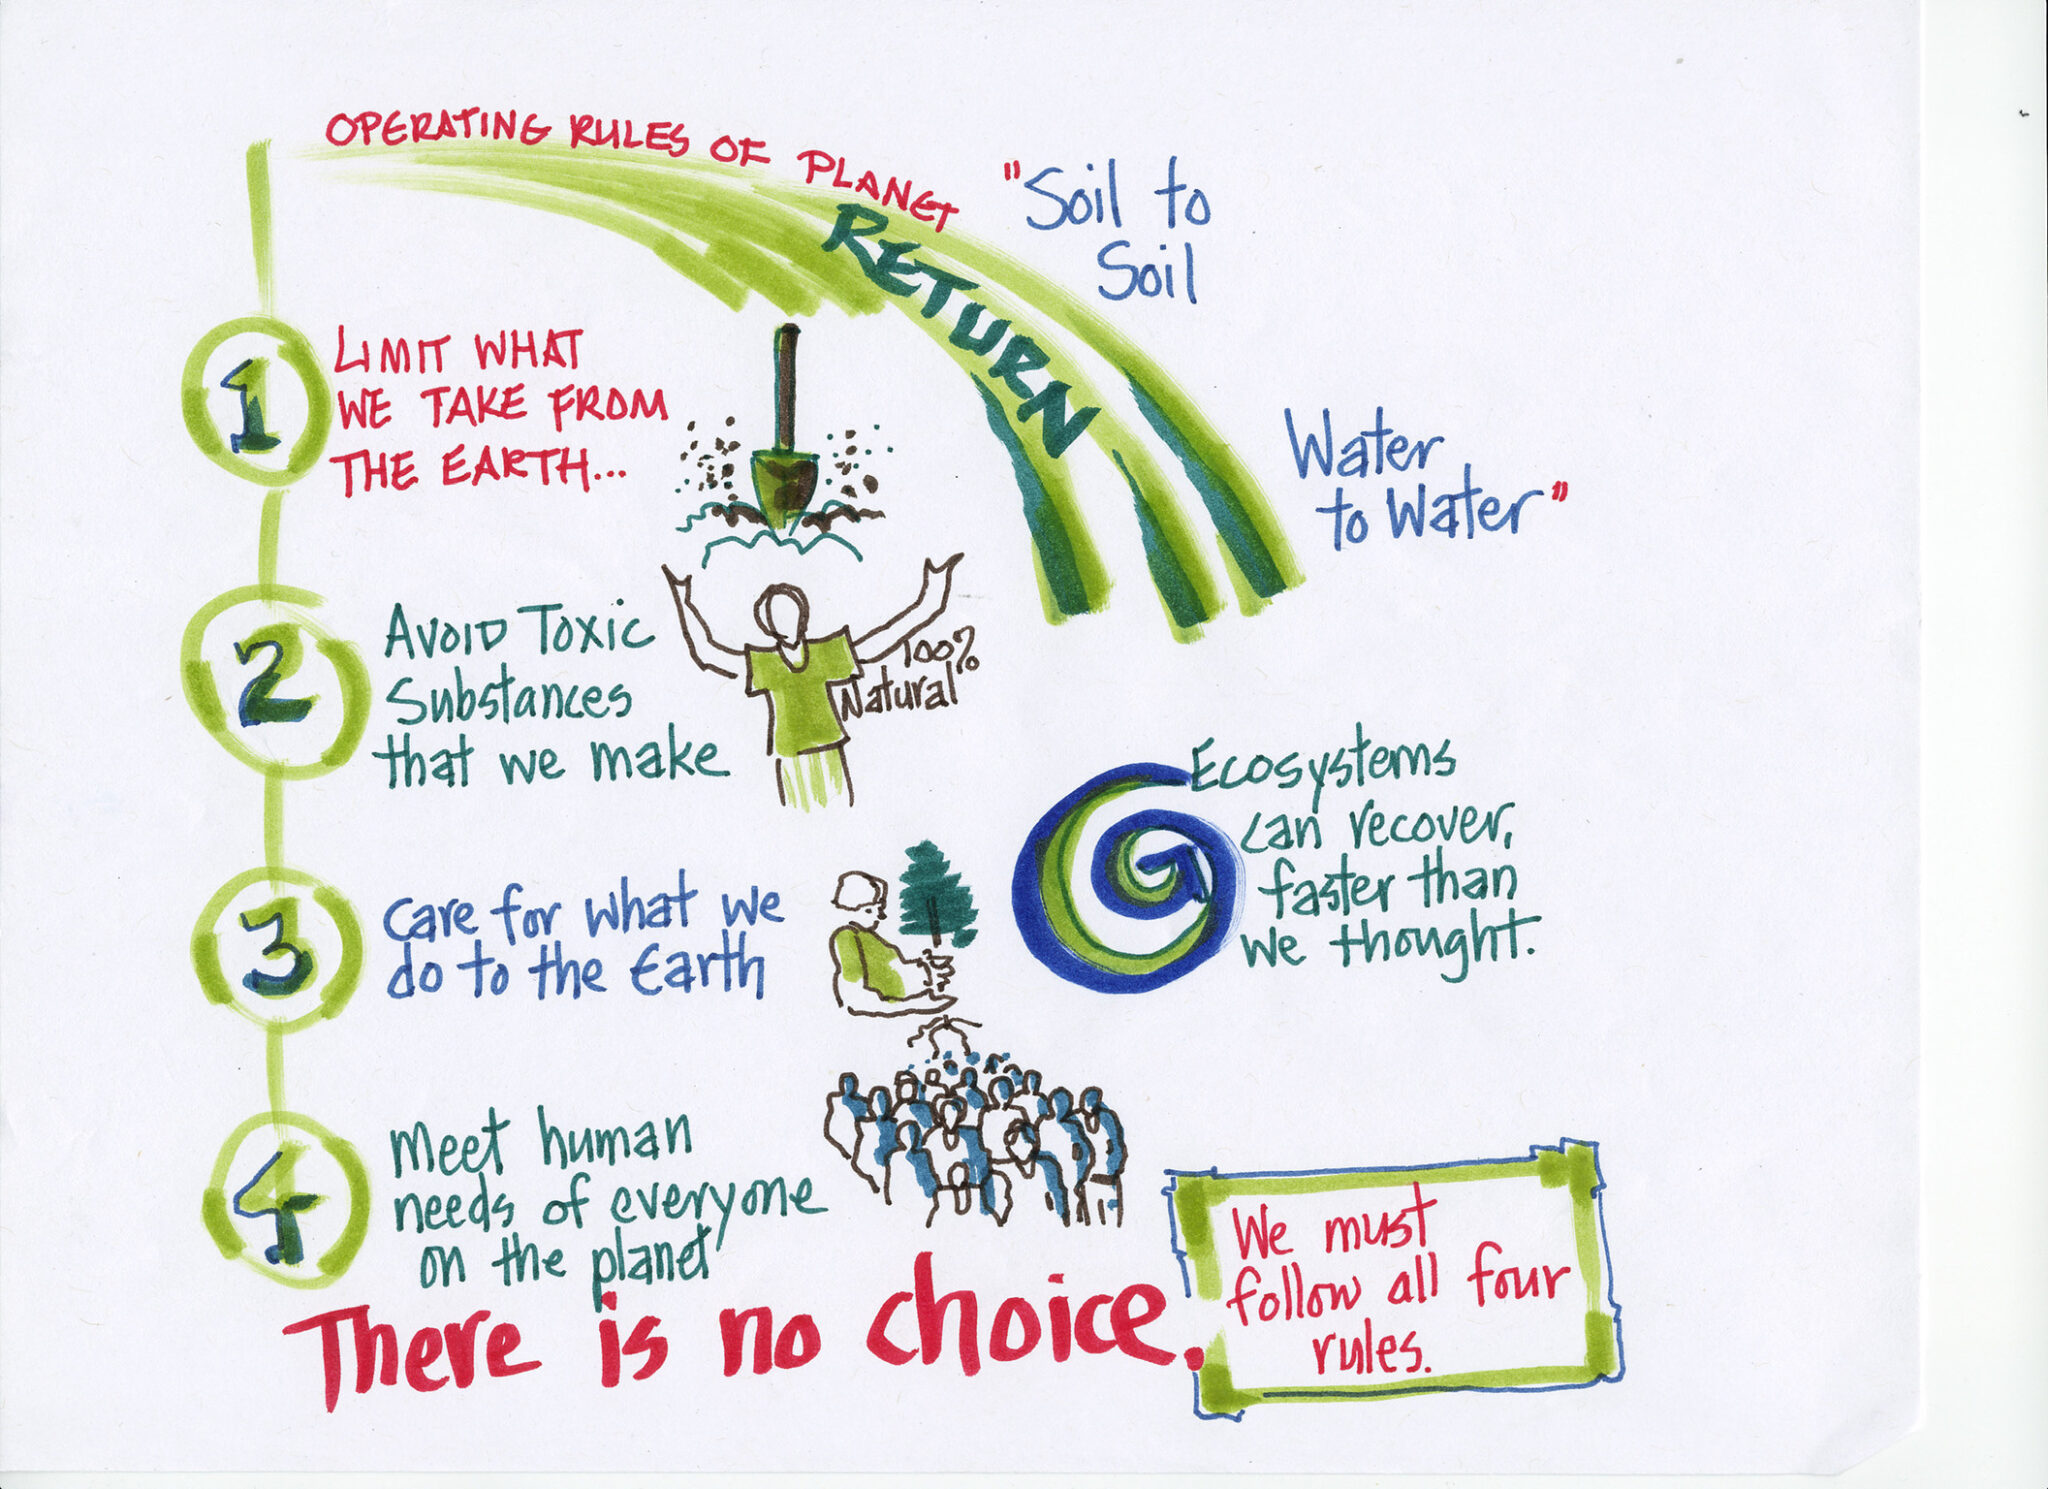 OPERATING RULES OF PLANET
RETURN
"Soil to
Soil
Water
to Water"
1
LIMIT WHAT
WE TAKE FROM
THE EARTH...
2
AVOID TOXIC
Substances
that we make
100%
Natural
3
care for what we
do to the Earth
Ecosystems
can recover,
faster than
we thought.
4
Meet human
needs of everyone
on the planet
There is no choice.
We must
follow all four
rules.